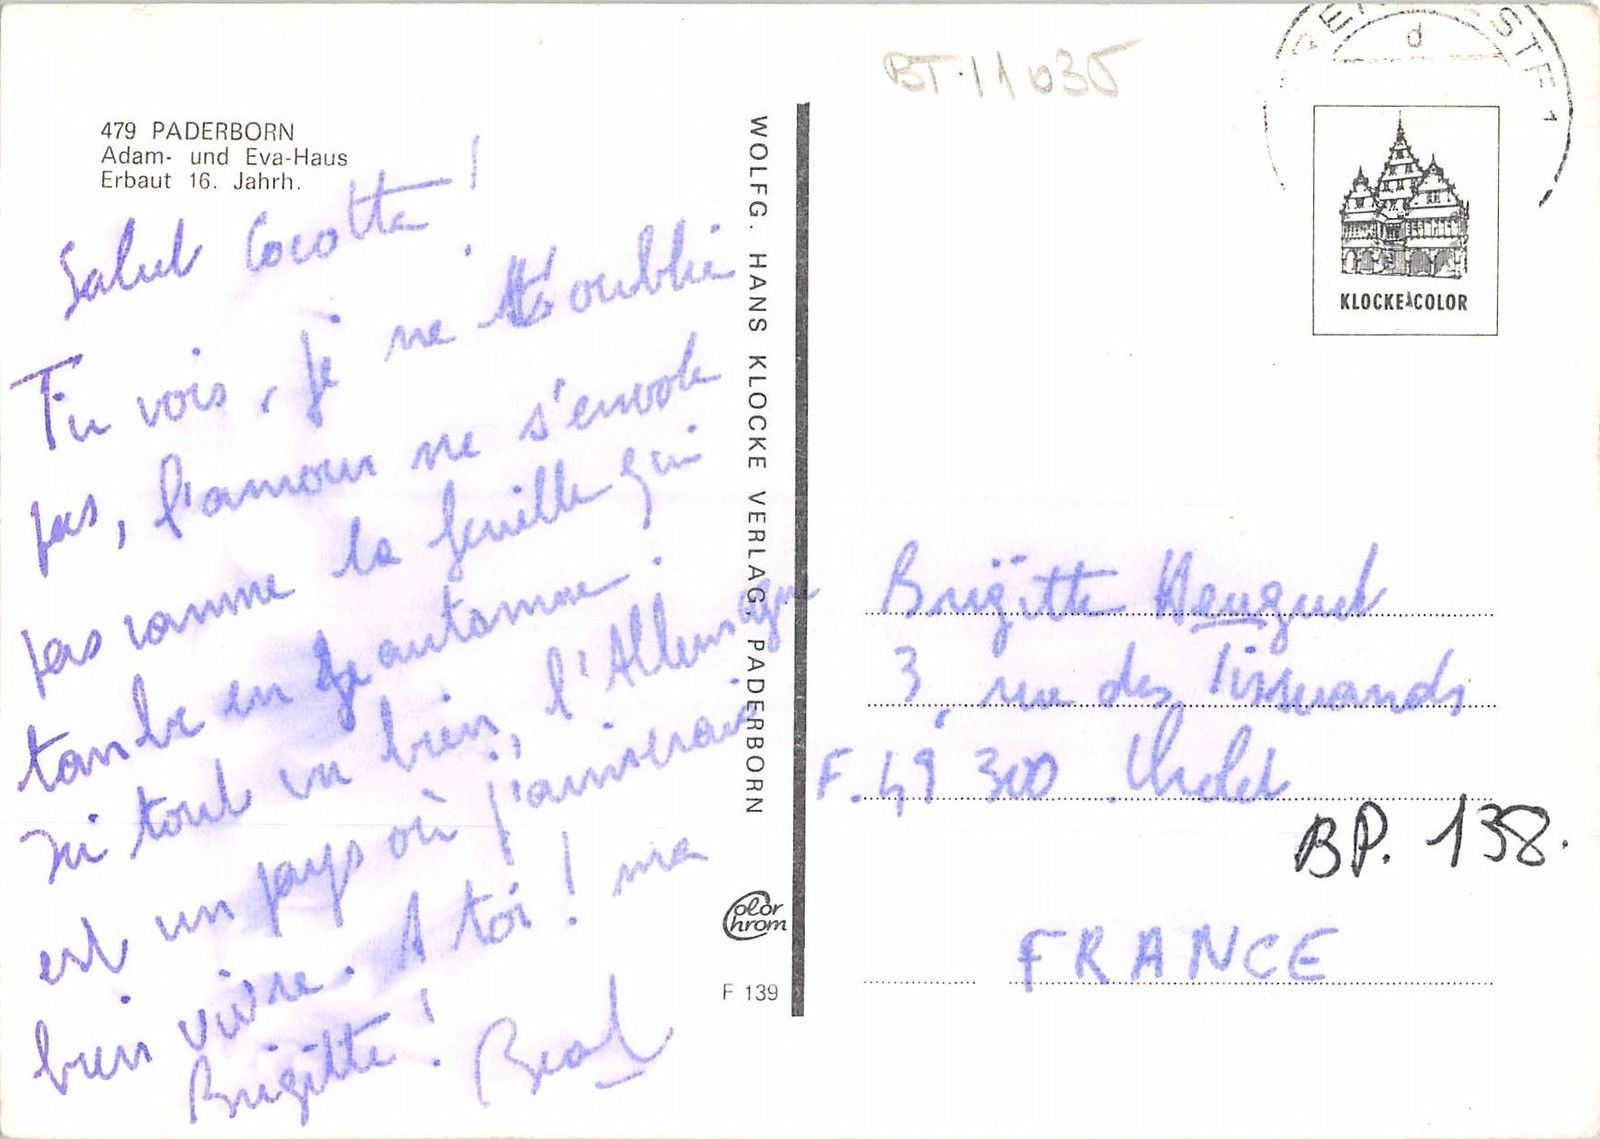 479 PADERBORN
Adam- und Eva-Haus
Erbaut 16. Jahrh.
Salut Cocotte !
Tu vois, je ne t'oublie
pas, l'amour ne s'envole
pas comme la feuille qui
tombe en automne.
Ici tout va bien, l'Allemagne
est un pays où j'aimerais
bien vivre. A toi ! ma
Brigitte !
WOLFG. HANS KLOCKE VERLAG, PADERBORN
Color Chrom
F 139
BT.11035
d
1
KLOCKE COLOR
Brigitte
3, rue des Tisserands
F. 49 300 Cholet
BP. 138.
FRANCE